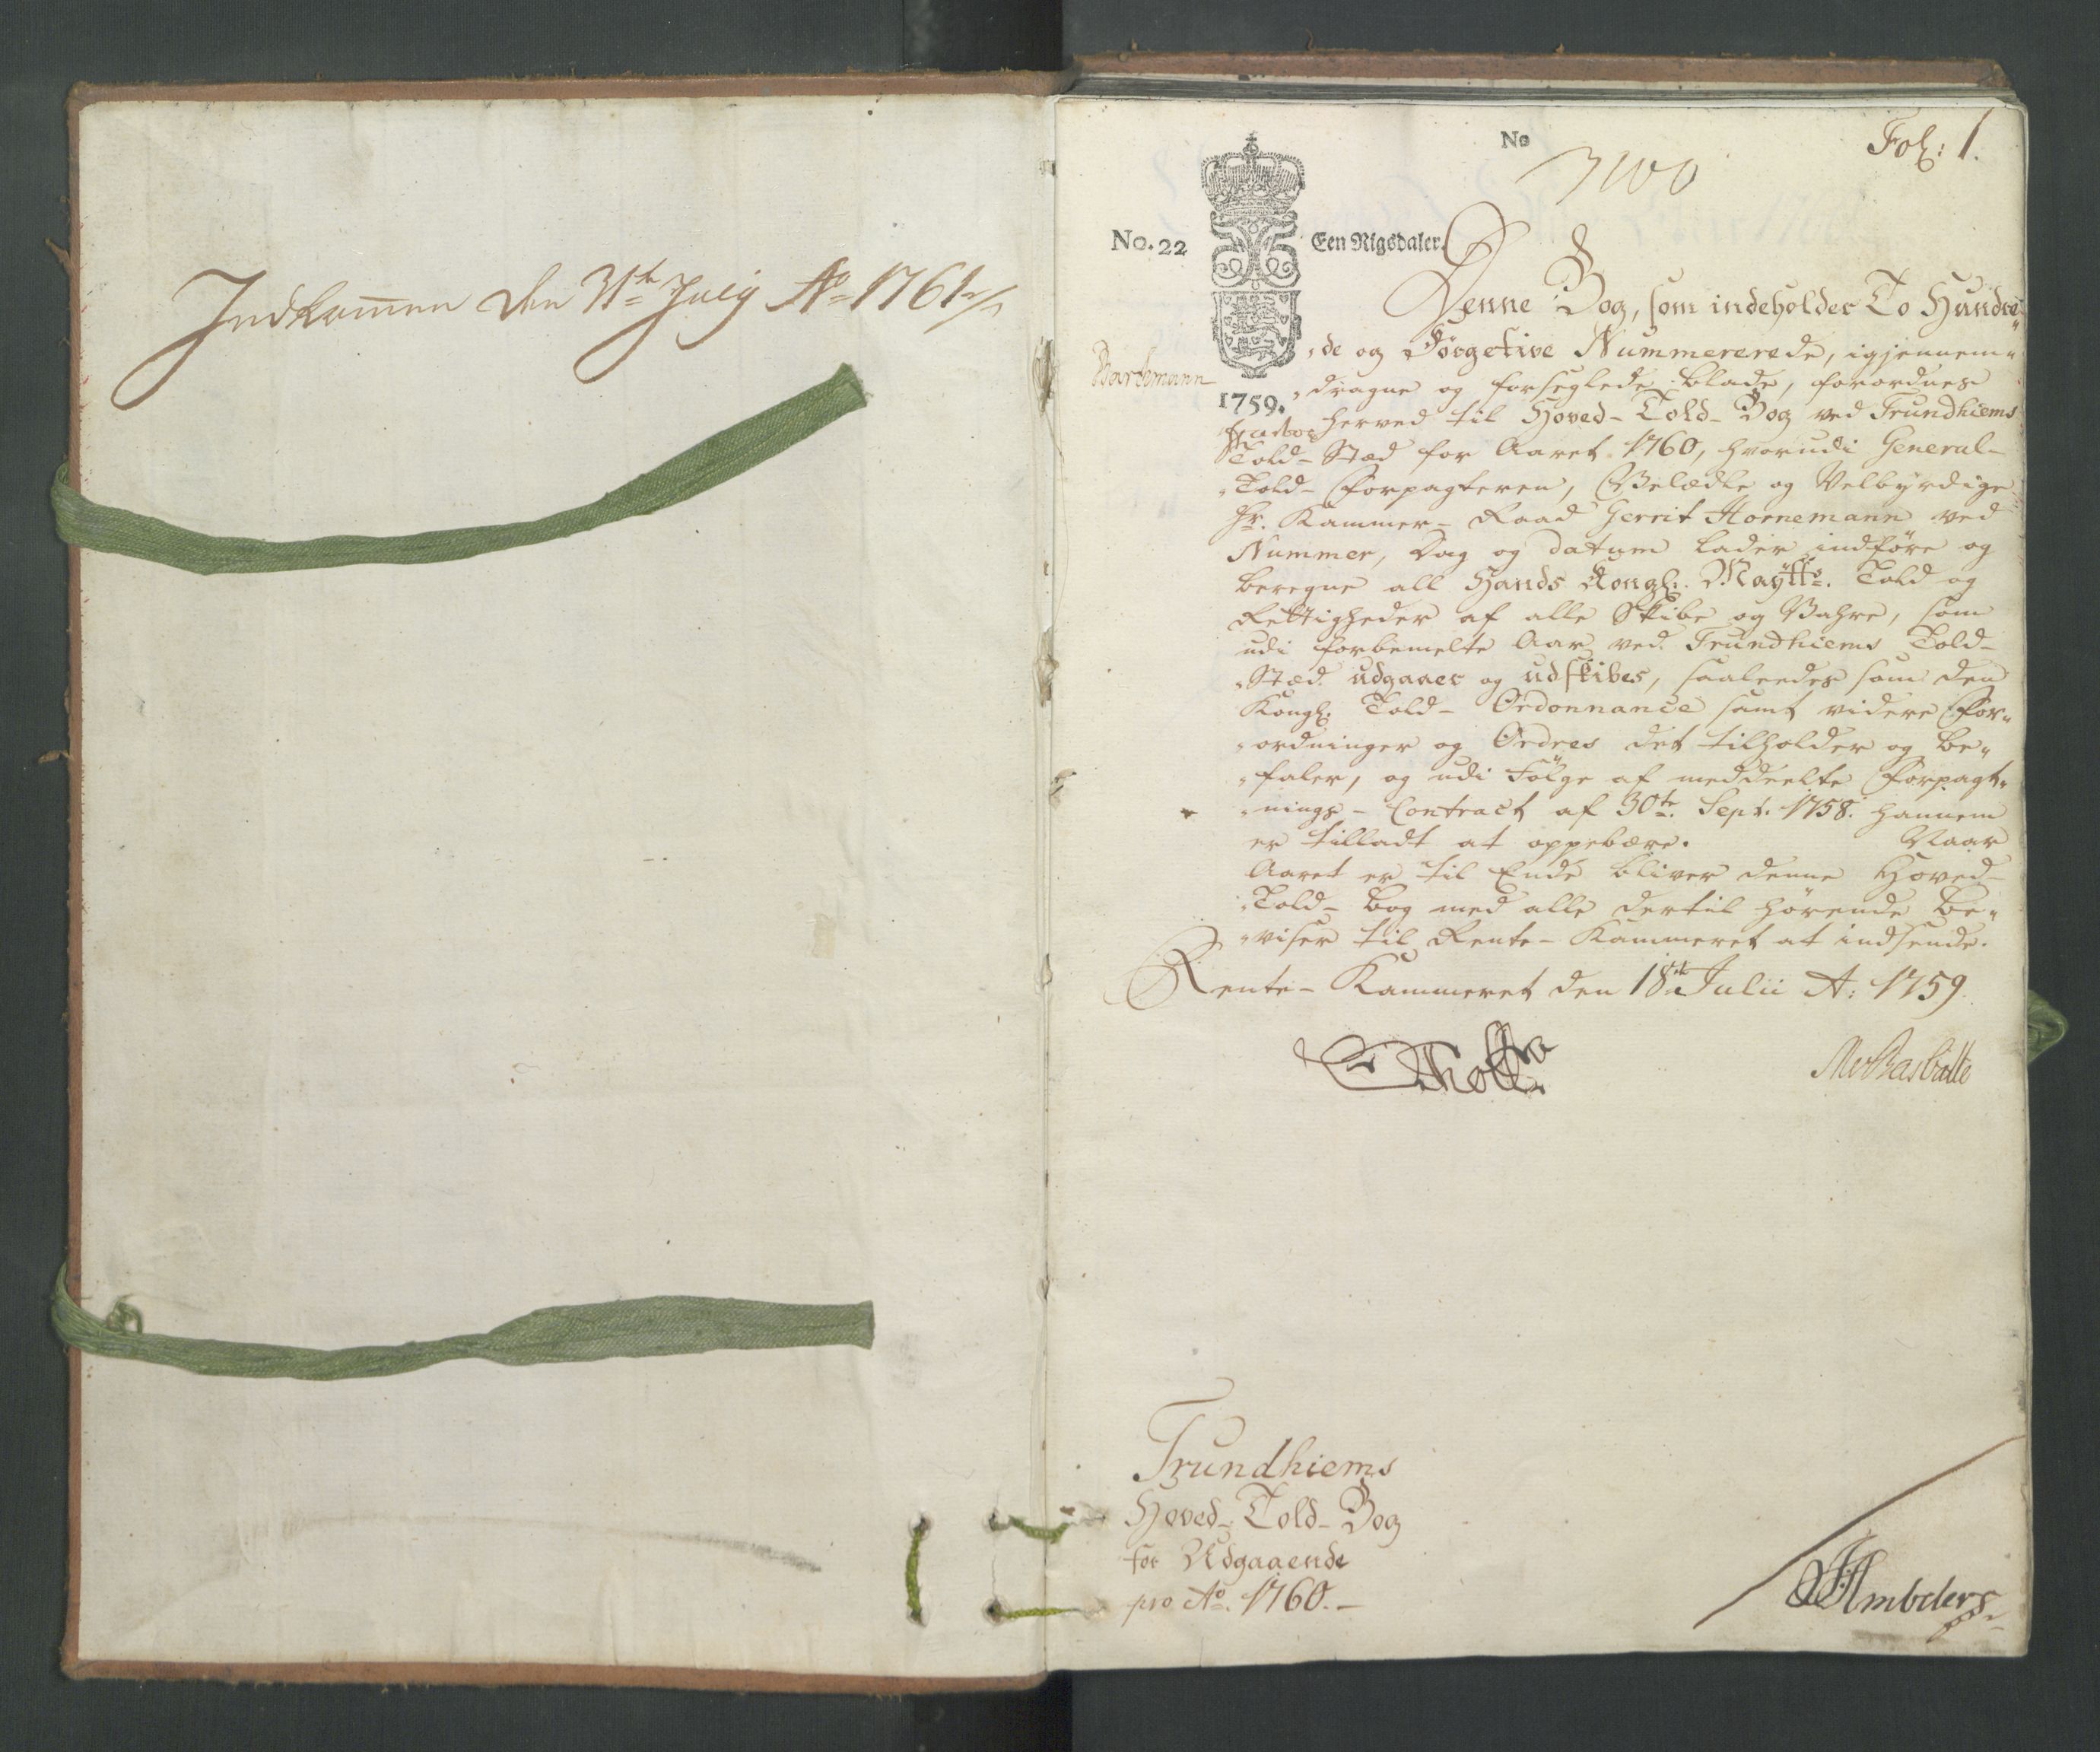 Indkom̄en den 31te Julij Ao 1761
No
Fol: 1.
No. 22
Een Rigsdaler.
1759.
Denne Bog, som indeholder To Hundre„
„de og Nummererede, igjennem„
„dragne og forseglede blade, forordnes
herved til Hoved-Told-Bog ved Trundhiems
Told-Stæd for Aaret 1760, hvorudi General-
„Told-Forpagteren, Velædle og Velbyrdige
Hr. Kammer-Raad Gerrit Hornemann ved
Nummer, Dag og datum lader indføre og
beregne all Hands Kongl: Maÿtts. Told og
Rettigheder af alle Skibe og Vahre, som
udi forbemelte Aar ved Trundhiems Told-
„Stæd udgaaer og udskibes, saaleedes som den
Kongl: Told-Ordonnance samt videre For„
„ordninger og Ordres det tilholder og be„
„faler, og udi Følge af meddeelte Forpagt„
„nings-Contract af 30te. Sept. 1758. hannem
er tilladt at oppebære. Naar
Aaret er til Ende bliver denne Hoved-
„Told-bog med alle dertil hørende be„
„viser til Rente-Kammeret at indsende.
Rente-Kammeret den 18te Julii A: 1759
Trundhiems
Hoved-Told-Bog
for Udgaaende
pro Ao. 1760.-